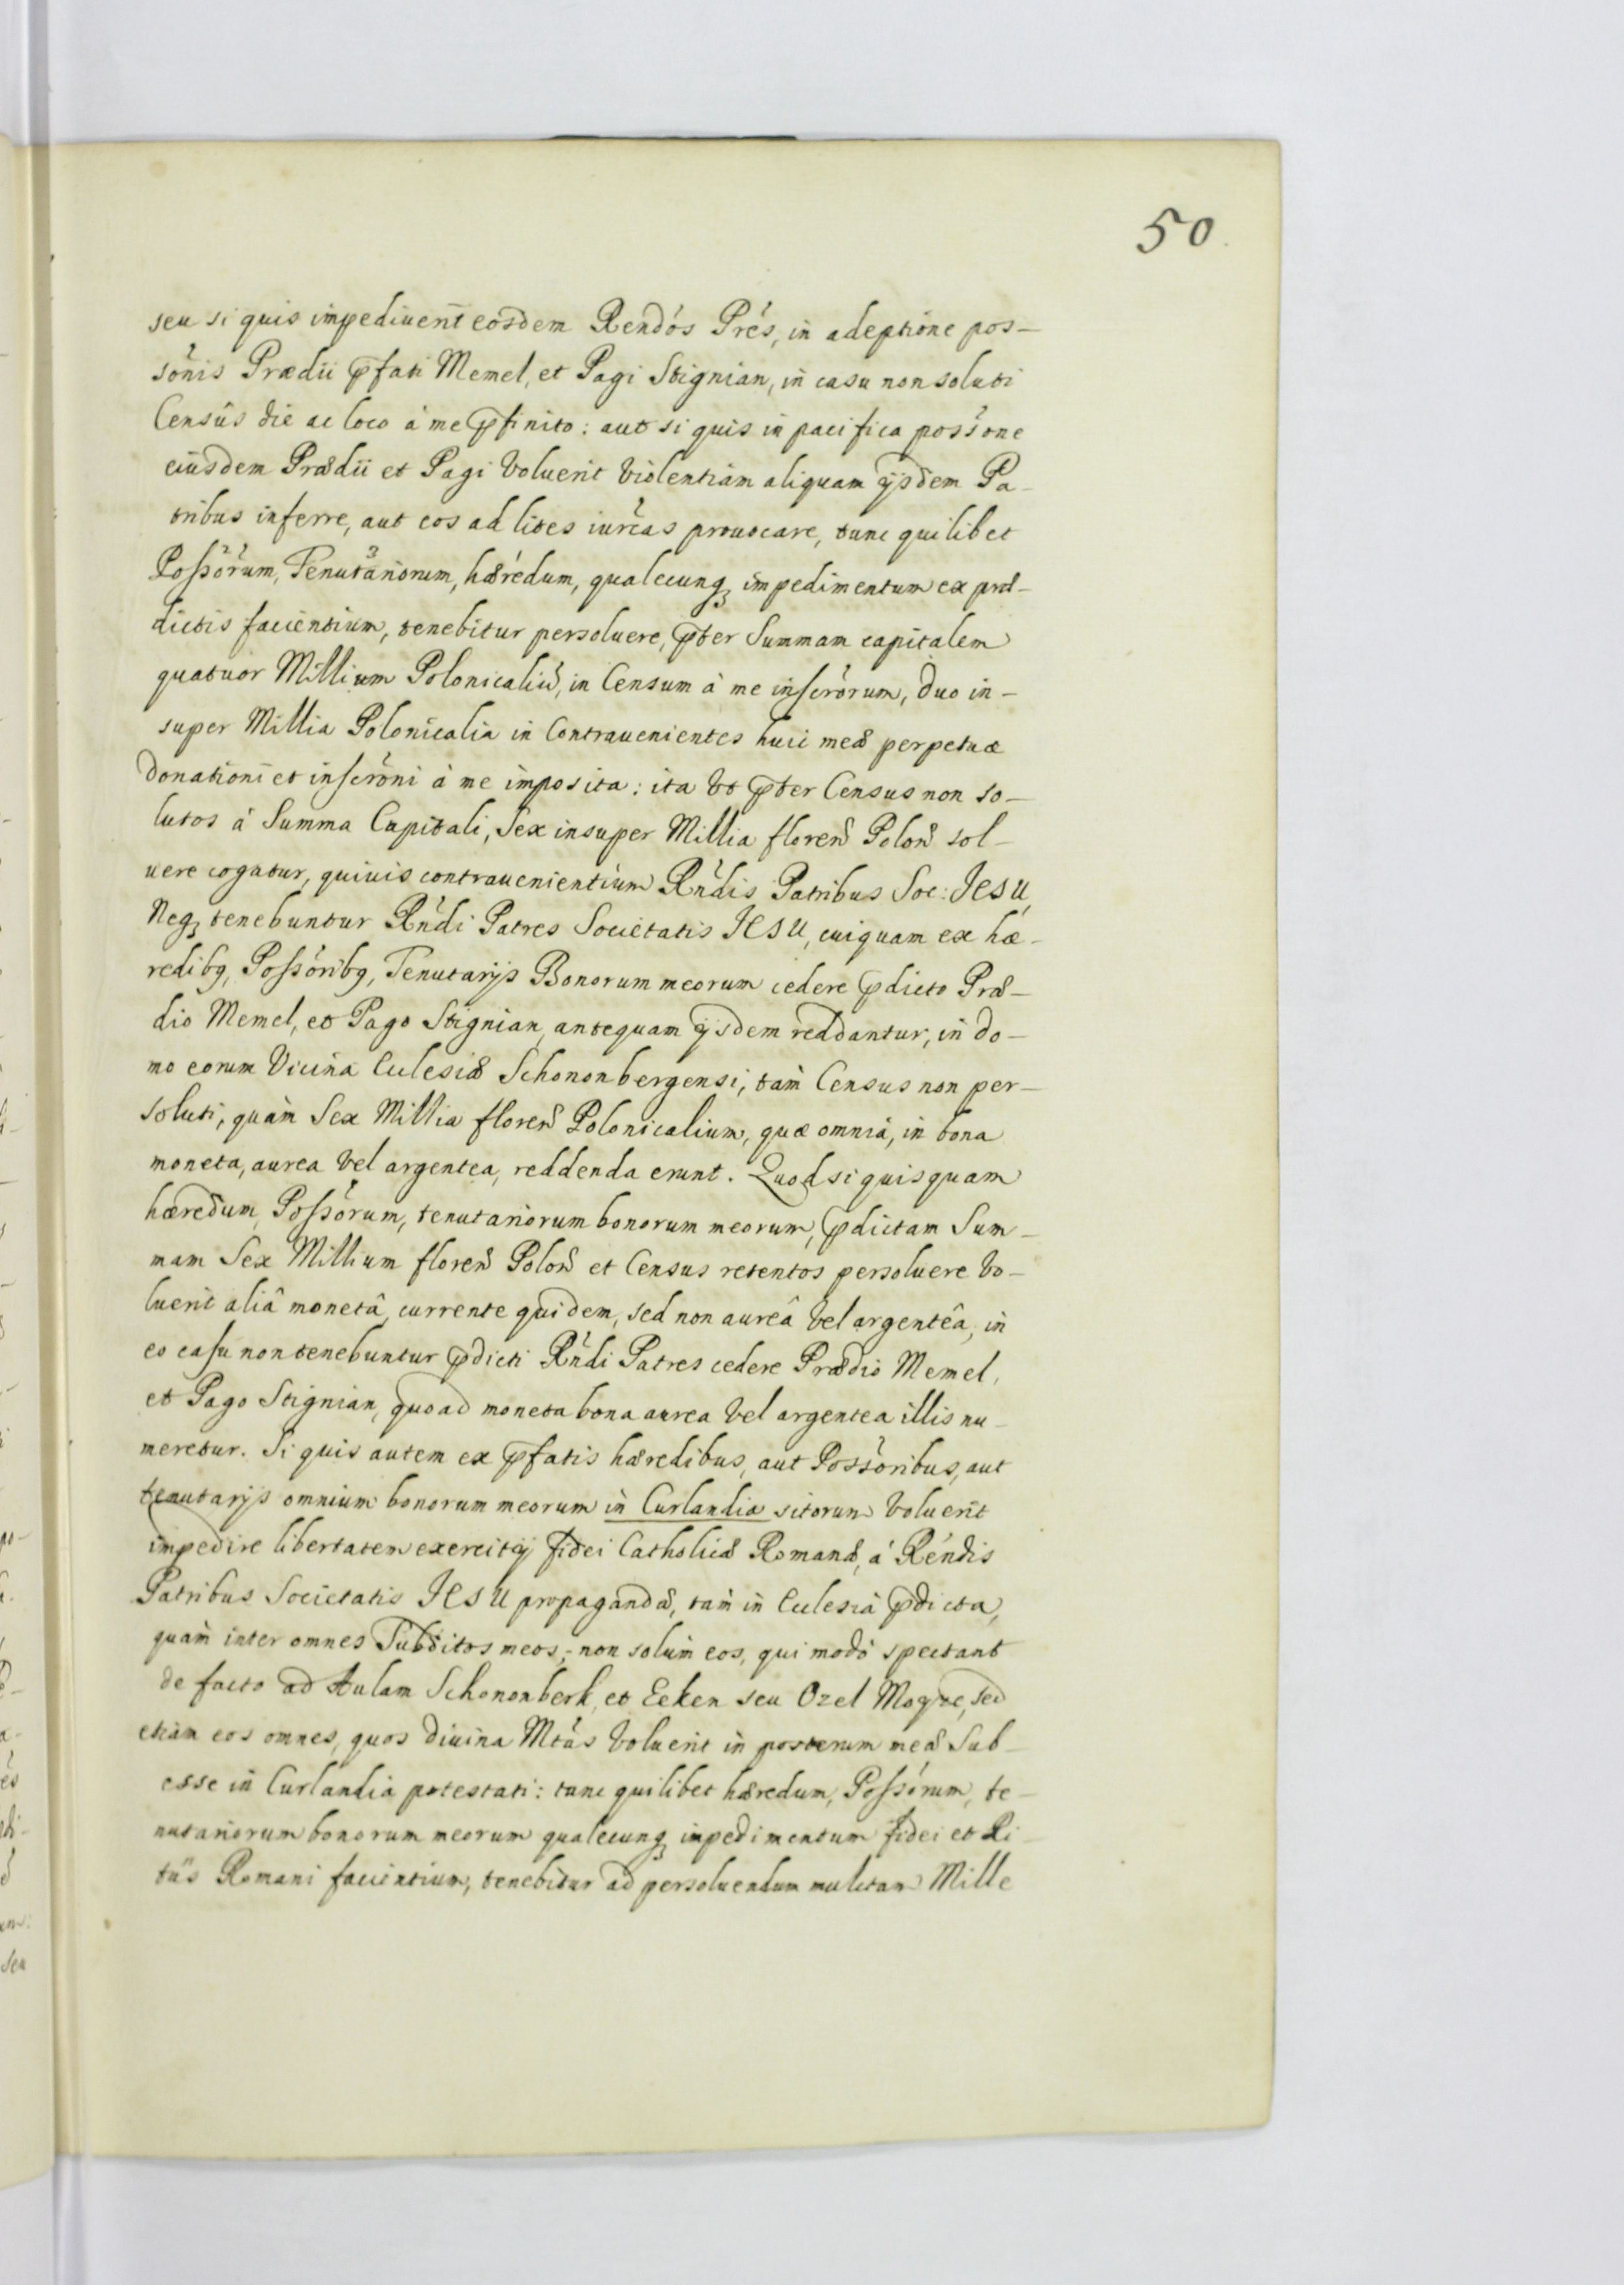 50
seu si quis impediuerit eosdem Rendós Prés, in adeptione pos-
sónis Prædii p̄fati Memel, et Pagi Stignian, in casu non soluti
Censûs die ac loco à me p̄finito: aut si quis in pacifica possóne
eiusdem Prædii et Pagi Voluerit Violentiam aliquam ijsdem Pa-
tribus inferre, aut eos ad lites iurcas prouocare, tunc quilibet
Possórum, Tenutariorum, hæredum, qualecunq₃ impedimentum ex præ-
dictis facientium, tenebitur persoluere, p̄ter Summam capitalem
quatuor Millium Polonicaliũ, in Censum à me inscrórum, duo in-
super Millia Polonicalia in Contrauenientes huic meæ perpetuæ
donationi et inscróni à me imposita: ita Vt p̄ter Census non so-
lutos à Summa Capitali, Sex insuper Millia floren̄ Polon̄ sol-
uere cogatur, quiuis contrauenientium Rńdis Patribus Soc: JESU,
Neq₃ tenebuntur Rńdi Patres Societatis JESU, cuiquam ex hæ-
redibq, Possóribq, Tenutarijs Bonorum meorum cedere p̄dicto Præ-
dio Memel, et Pago Stignian, antequam ijsdem reddantur, in do-
mo eorum Vicina Eclesiæ Schononbergensi, tam Census non per-
soluti, quàm Sex Millia floren̄ Polonicalium, quæ omnia, in bona
moneta, aurea Vel argentea, reddenda erunt. Quod si quisquam
hæredum, Possórum, tenutariorum bonorum meorum, p̄dictam Sum-
mam Sex Millium floren̄ Polon̄ et Census retentos persoluere Vo-
luerit aliâ monetâ, currente quidem, sed non aureâ Vel argenteâ, in
eo casu non tenebuntur p̄dicti Rńdi Patres cedere Prædio Memel,
et Pago Stignian, quoad moneta bona aurea Vel argentea illis nu-
meretur. Si quis autem ex p̄fatis hæredibus, aut Possóribus, aut
tenutarijs omnium bonorum meorum in Curlandia sitorum Voluerit
impedire libertatem exercitij fidei Catholicæ Romanæ, à Réndis
Patribus Societatis JESU propagandæ, tam in Eclesiâ p̄dicta,
quàm inter omnes Subditos meos,- non solùm eos, qui modò spectant
de facto ad Aulam Schononberk, et Ecken seu Ozel Mogze, sed
etiam eos omnes, quos diuina Mtás Voluerit in posterum meæ Sub-
esse in Curlandia potestati: tunc quilibet hæredum, Possórum, te-
nutariorum bonorum meorum qualecunq₃ impedimentum fidei et Ri-
tûs Romani facientium, tenebitur ad persoluendum mulctam Mille